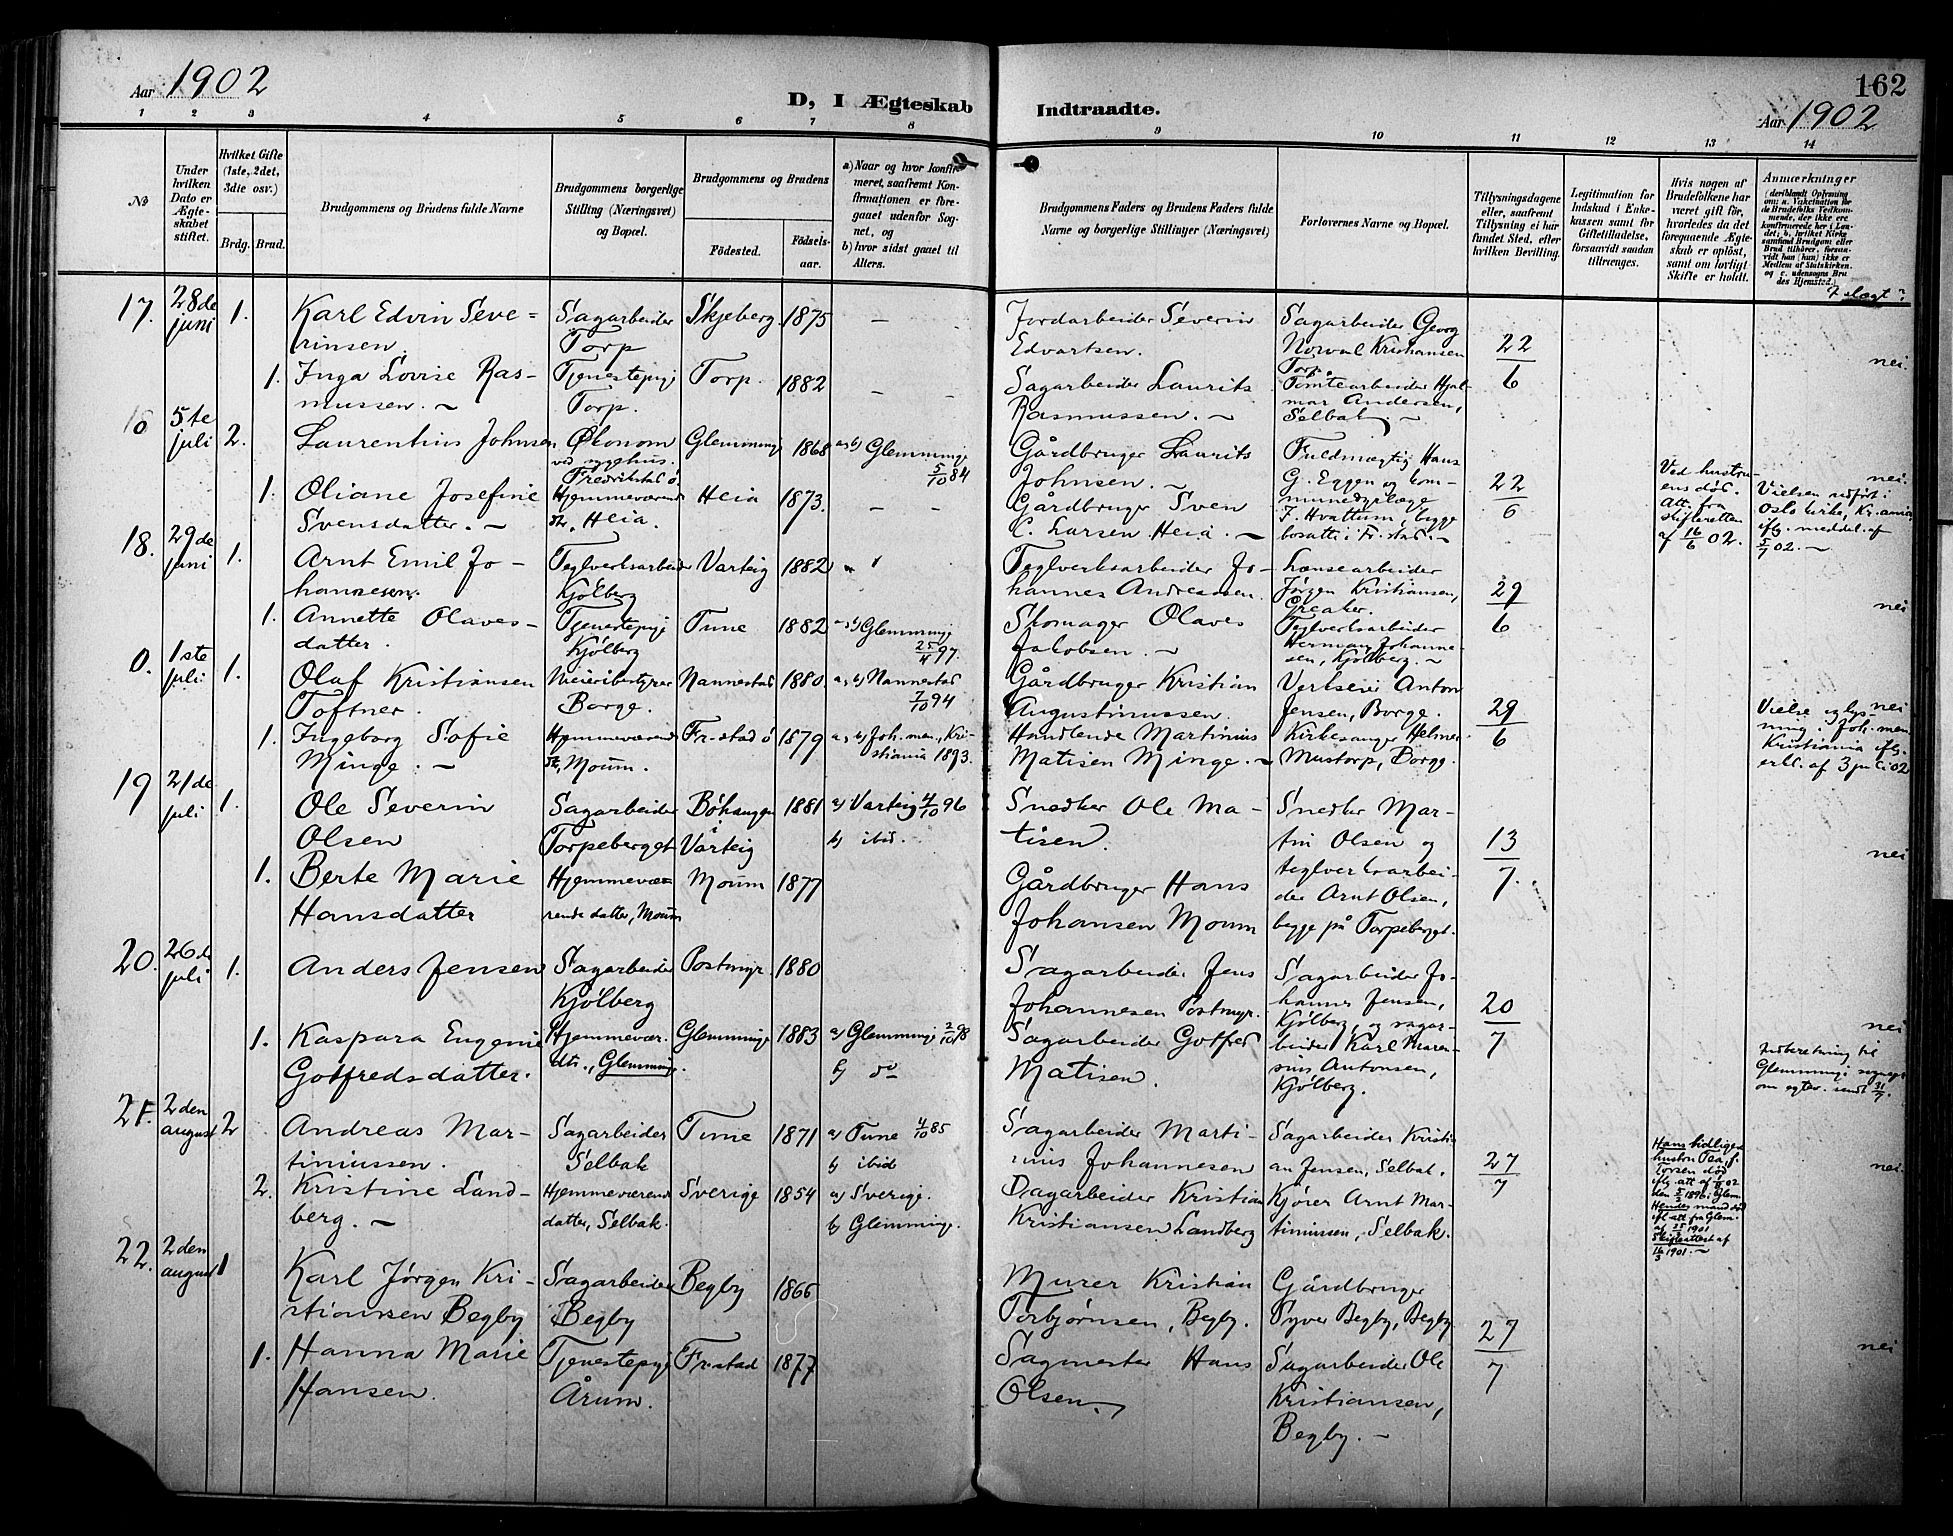 Aar 1902
D, I Ægteskab Indtraadte.
162
Aar 1902
1 2 3 4 5 6 7 8 9 10 11 12 13 14
No
Under hvilken Dato er Ægteskabet stiftet.
Hvilket Gifte (1ste, 2det, 3die osv.)
Brdg. Brud.
Brudgommens og Brudens fulde Navne
Brudgommens borgerlige Stilling (Næringsvei) og Bopæl.
Brudgommens og Brudens
Fødested.
Fødselsaar.
a) Naar og hvor konfirmeret, saafremt Konfirmationen er foregaaet udenfor Sognet, og
b) hvor sidst gaaet til Alters.
Brudgommens Faders og Brudens Faders fulde Navne og borgerlige Stillinger (Næringsvei)
Forlovernes Navne og Bopæl.
Tillysningsdagene eller, saafremt Tillysning ei har fundet Sted, efter hvilken Bevilling.
Legitimation for Indskud i Enkekassen samt for Giftetilladelse, forsaavidt saadan tiltrænges.
Hvis nogen af Brudefolkene har været gift før, hvorledes da det foregaaende Ægteskab er opløst, samt om lovligt Skifte er holdt.
Anmærkninger
I slægt?
17. 28de juni 1. Karl Edvin Severinsen Sagarbeider Torp Skjeberg. 1875 —
Jordarbeider Severin Edvartsen. Sagarbeider Georg Norval Kristiansen Torp. 22/6 nei.
1. Inga Lovise Rasmussen. Tjenestepige Torp. Torp. 1882 — —
Sagarbeider Laurits Rasmussen. Tomtearbeider Hjalmar Andersen, Selbak.
0 5te juli 2. Laurentius Johnsen. Økonom ved sygehus. Fredrikstad Glemminge 1868 a, b) Glemminge 5/10 84
Gårdbruger Laurits Johnsen. Fuldmægtig Hans G. Eggen og kommunedyrlæge J. Hvattum, begge bosatte i Fr.stad. 22/6
Ved hustruens død. Att. fra skifteretten af 16/6 02.
nei. Vielsen udført i Oslo kirke, Kr.ania iflg. meddel. af 5/7 02.
1. Oliane Josefine Svensdatter. Hjemmeværende dt., Heia. Heia 1873. — —
Gårdbruger Sven C. Larsen Heia.
18. 29de juni 1. Arnt Emil Johannesen. Teglverksarbeider Kjølberg Varteig 1882
Teglverksarbeider Johannes Andreassen. Lænsearbeider Jørgen Kristiansen, Greaker. 29/6 nei
1. Annette Olavesdatter. Tjenestepige Kjølberg Tune 1882 a, b) Glemminge 25/4 97.
Skomager Olaves Jakobsen. Teglverksarbeider Herman Johannesen, Kjølberg.
0. 1ste juli. 1. Olaf Kristiansen Toftner. Meieribestyrer Borge. Nannestad 1880. a, b) Nannestad 7/10 94
Gårdbruger Kristian Augustinussen. Verkseier Anton Jensen, Borge. 29/6 nei
Vielse og lysning i Joh. men. Kristiania iflg. erkl. af 3 juli 02
1. Ingeborg Sofie Minge. Hjemmeværende dt., Moum. Fr.stad 1879 a, b) Joh. men., Kristiania 1893.
Handlende Martinius Matisen Minge. Kirkesanger Helmer Mustorp, Borge.
19 21de juli 1. Ole Severin Olsen Sagarbeider Torpeberget Bøhaugen i Varteig 1881 a) Varteig 4/10 96 b) ibid.
Snedker Ole Matisen. Snedker Martin Olsen og teglverksarbeider Arnt Olsen, begge på Torpeberget. 13/7. nei
1. Berte Marie Hansdatter Hjemmeværende datter, Moum Moum 1877
Gårdbruger Hans Johansen Moum
20. 26de juli 1. Anders Jensen Sagarbeider Kjølberg Postmyr. 1880
Sagarbeider Jens Johannesen Postmyr. Sagarbeider Johannes Jensen, Kjølberg, og sagarbeider Karl Marensius Antonsen, Kjølberg. 20/7 nei
Indberetning til Glemminge
1. Kaspara Eugenie Gotfredsdatter. Hjemmevær. dtr., Glemminge. Glemminge 1883 a) Glemminge 2/10 98 b) do
Sagarbeider Gotfred Matisen.
21. 2den august 2 Andreas Martiniussen. Sagarbeider Selbak Tune 1871 a) Tune 4/10 85 b) ibid
Sagarbeider Martinius Johannesen Sagarbeider Kristian Jensen, Selbak. 27/7 nei.
Hans tidligere hustru
Hendes mand død ifl. att. fra Glem. af 25/5 1901 Skifteattest af 16/3 1901.
2. Kristine Landberg. Hjemmeværende datter, Selbak. Sverige 1854 a) Sverige. b) Glemminge.
Dagarbeider Kristian Kristiansen Landberg Kjører Arnt Martiniussen, Selbak.
22. 2den august 1 Karl Jørgen Kristiansen Begby Sagarbeider Begby Begby 1866
Murer Kristian Torbjørnsen, Begby. Gårdbruger Syver Begby, Begby 27/7 nei
1. Hanna Marie Hansen. Tjenestepige Årum. Fr.stad 1877
Sagmester Hans Olsen. Sagarbeider Ole Kristiansen, Begby.